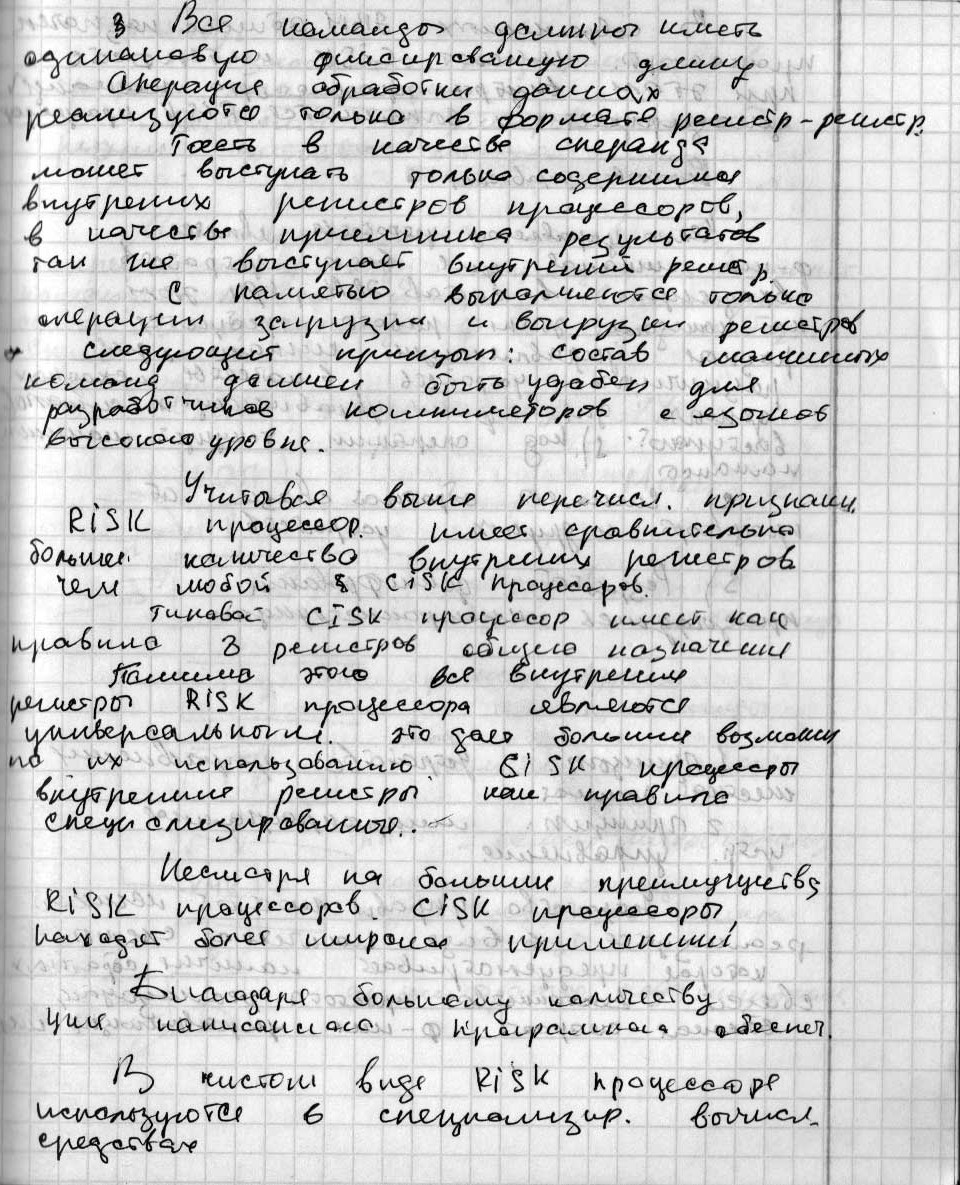 Все команды должны иметь
одинаковую фиксированную длину
Операция обработки данных
реализуются только в формате регистр-регистр.
Тоесть в качестве операнда
может выступать только содержимое
внутрених регистров процессоров,
в качестве приемника результатов
так же выступает внутрений регистр.
С памятью выполняются только
операции загрузки и выгрузки регистров
следующий принцып: состав машинных
команд должен быть удобен для
разработчиков компиляторов с языков
высокого уровня.
Учитывая выше перечисл. признаки
RISK процессор. имеет сравнительно
больше количество внутрених регистров
чем любой CISK процессоров.
типовой CISK процессор имеет как
правило 8 регистров общего назначения
Помимо этого все внутрение
регистры RISK процессора являются
универсальными. это дает больше возможн
по их использованию. CISK процессоры
внутрение регистры как правило
специализированные.
Несмотря на большие преимущества
RISK процессоров. CISK процессоры
находят более широкое применений
Благодаря большому количеству
уже написанного програмного обеспеч.
В чистом виде RISK процессоре
используются в специализир. вычисл.
средствах